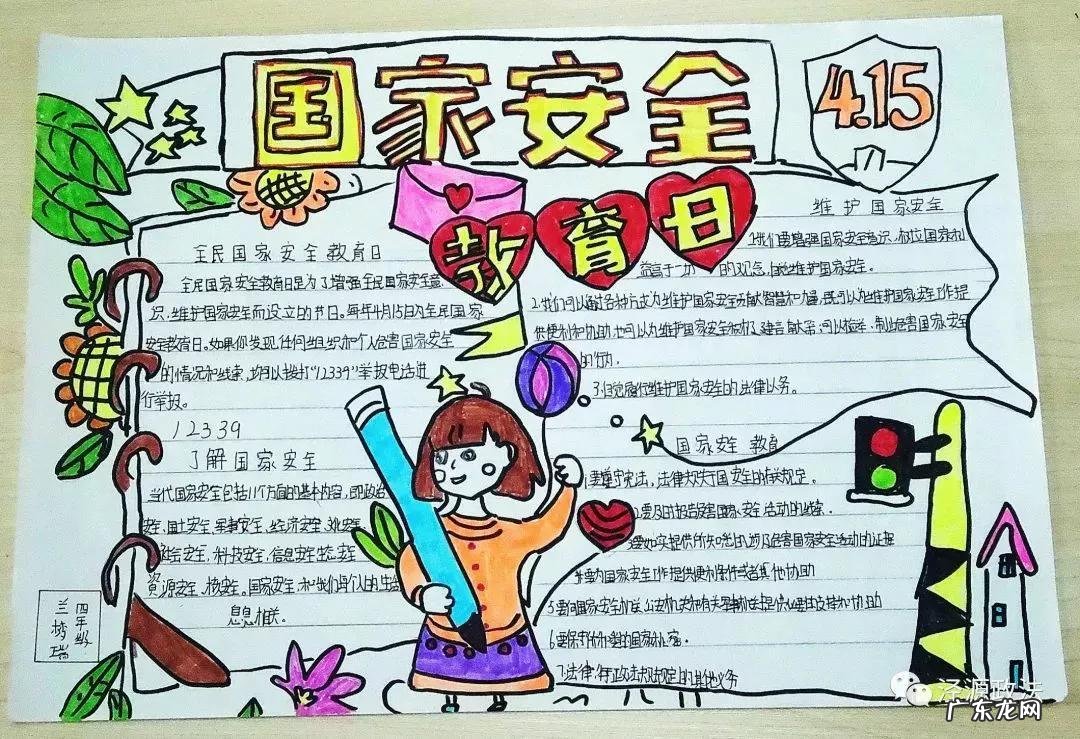 国家安全
4.15
教育日
全民国家安全教育日
全民国家安全教育日是为了增强全民国家安全意
识,维护国家安全而设立的节日。每年4月15日为全民国家
安全教育日。如果你发现任何组织和个人危害国家安全
的情况和线索,均可以拨打"12339"举报电话进
行举报。
12339
了解国家安全
当代国家安全包括11个方面的基本内容,即政治
安全、国土安全、军事安全、经济安全、文化安全
社会安全、科技安全、信息安全 生态安全
資源安全、核安全。国家安全和我们每个人的生活
息息相关。
四年级
兰梦瑞
维护国家安全
1.我们要增强国家安全意识,树立国家利
益高于一切的观念,自觉维护国家安全。
2.我们可以通过各种方式为维护国家安全贡献智慧和力量,既可以为维护国家安全工作提
供便利和协助,也可以为维护国家安全 建言献策,可以检举、制止危害国家安全
的行为。
3.自觉履行维护国家安全的法律义务。
国家安全教育
1.要遵守宪法,法律中关于国安全的有关规定。
2.要及时报告危害国家安全活动的线索。
3.要如实提供所知悉的涉及危害国家安全活动的证据
4.要为国家安全工作提供便利条件或者其他协助
5.要向国家安全机关、公安机关和有关军事机关提供必要的支持和协助
6.要保守所知悉的国家秘密。
7.法律,行政法规规定的其他义务
泽源政法
广东龙网